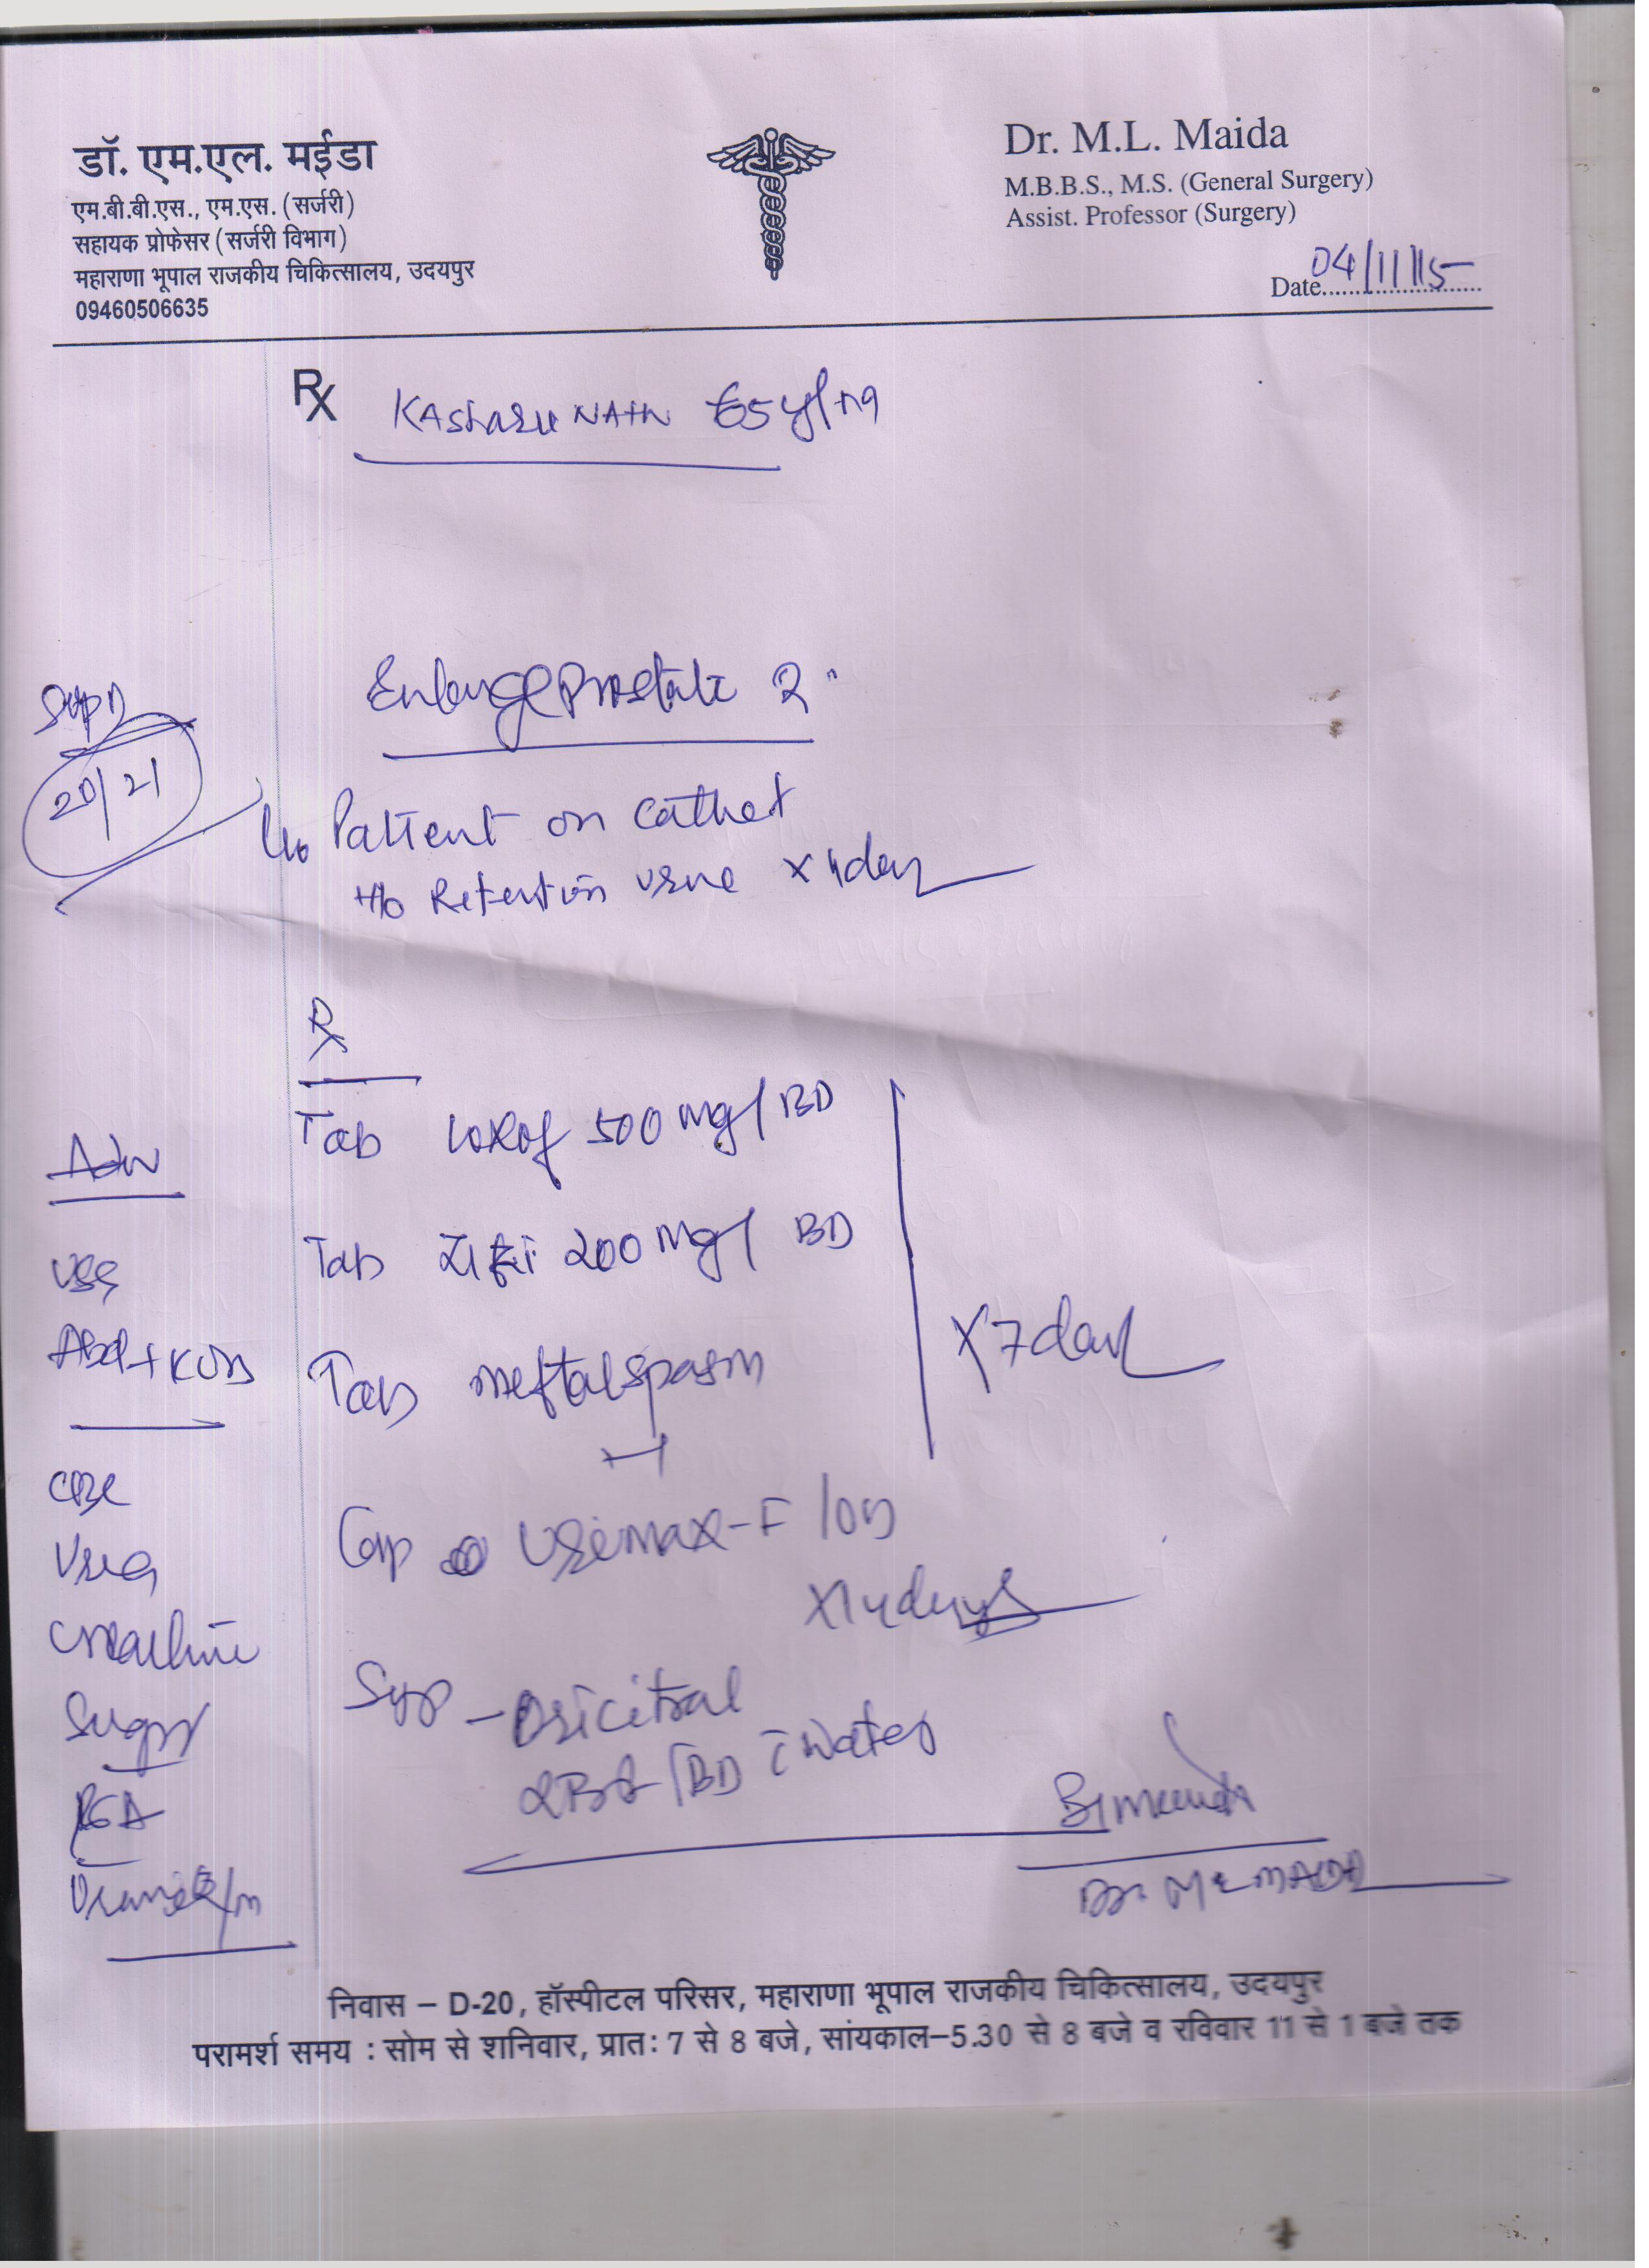 डॉ. एम.एल. मईडा
एम.बी.बी.एस., एम.एस. (सर्जरी)
सहायक प्रोफेसर (सर्जरी विभाग)
महाराणा भूपाल राजकीय चिकित्सालय, उदयपुर
09460506635
Dr. M.L. Maida
M.B.B.S., M.S. (General Surgery)
Assist. Professor (Surgery)
Date 04/11/15
Rx
NATH 65y/
Enlarge Prostate
20/21
Patient on
H/o Retention x 4day
Rx
Tab 500 mg/ BD
Tab 200 mg/ BD
Tab meftalspasm
x 7 day
Cap Urimax-F /OD
x 14 days
Syp - Oricitral
/BD c̄ water
Adv
USG
Abd + KUB
CBC
Urea
Sugar
PSA
निवास – D-20, हॉस्पीटल परिसर, महाराणा भूपाल राजकीय चिकित्सालय, उदयपुर
परामर्श समय : सोम से शनिवार, प्रातः 7 से 8 बजे, सांयकाल–5.30 से 8 बजे व रविवार 11 से 1 बजे तक